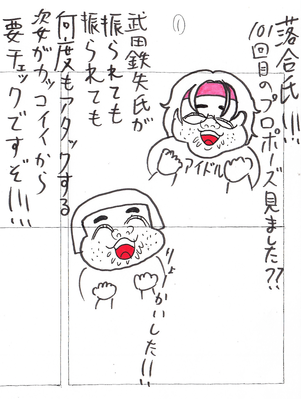 ①
落合氏!!!
101回目のプロポーズ見ました??
アイドル
武田鉄矢氏が
振られても
振られても
何度もアタックする
姿がカッコイイから
要チェックですぞ!!!
りょーかいした!!!